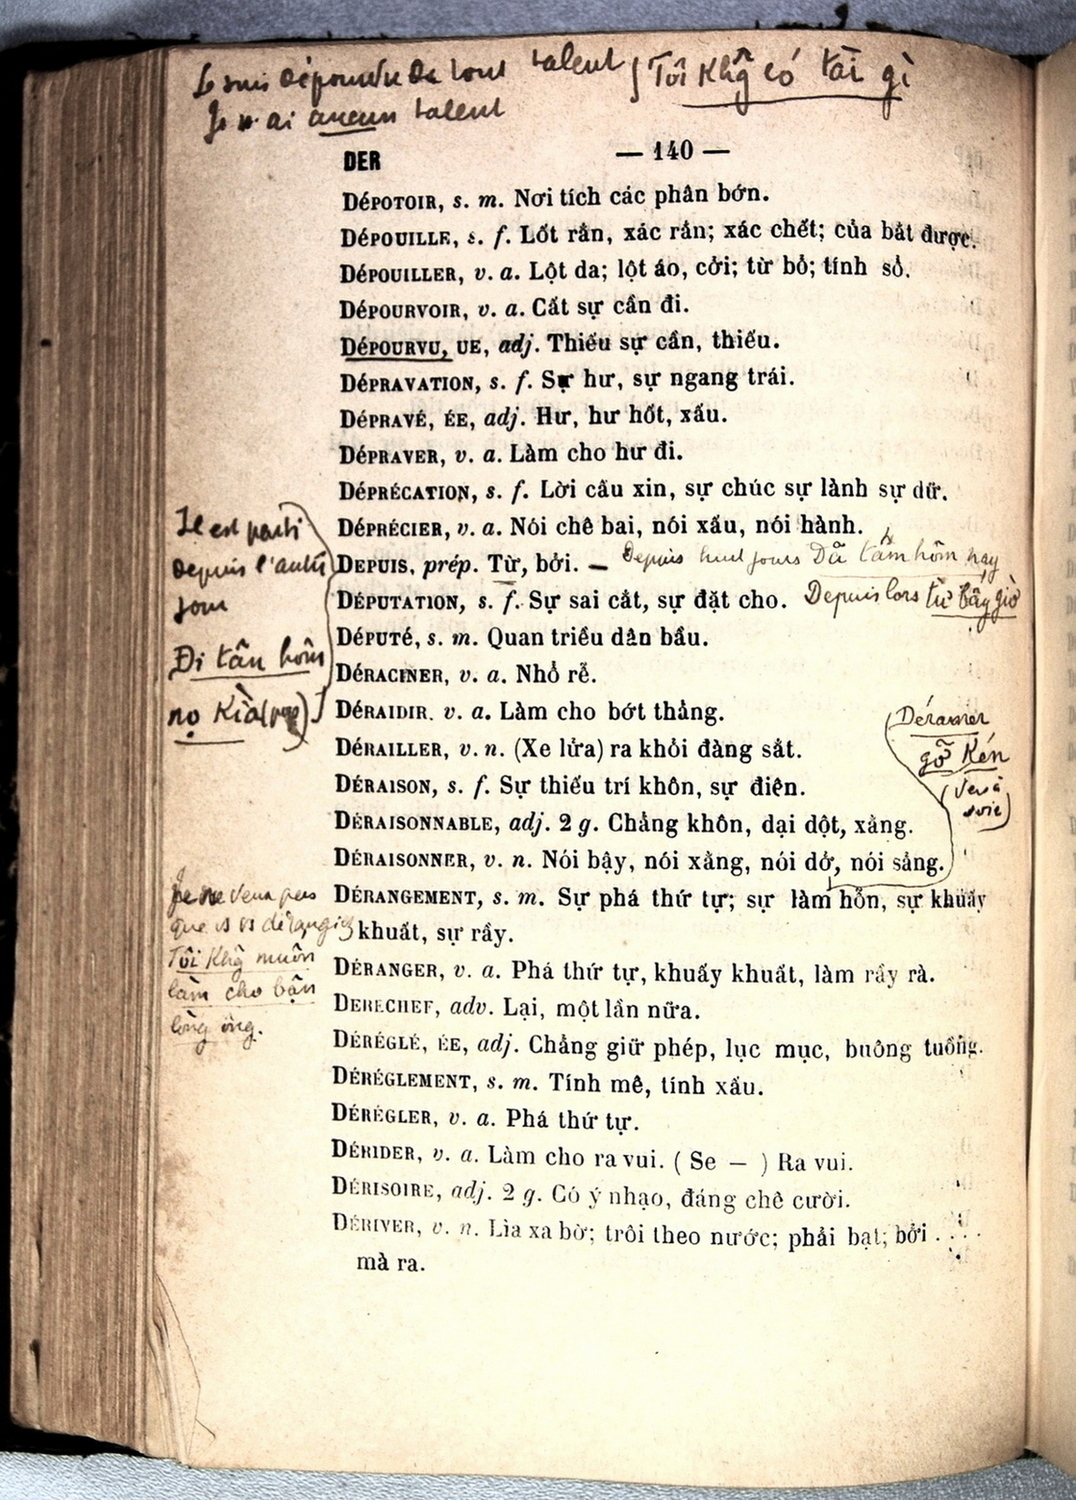 Je suis dépourvu de tout talent } Tôi Khg̃ có tài gì
Je n'ai aucun talent
DER — 140 —
DÉPOTOIR, s. m. Nơi tích các phân bớn.
DÉPOUILLE, s. f. Lốt rắn, xác rắn; xác chết; của bắt được.
DÉPOUILLER, v. a. Lột da; lột áo, cởi; từ bỏ; tính sổ.
DÉPOURVOIR, v. a. Cất sự cần đi.
DÉPOURVU, UE, adj. Thiếu sự cần, thiếu.
DÉPRAVATION, s. f. Sự hư, sự ngang trái.
DÉPRAVÉ, ÉE, adj. Hư, hư hốt, xấu.
DÉPRAVER, v. a. Làm cho hư đi.
DÉPRÉCATION, s. f. Lời cầu xin, sự chúc sự lành sự dữ.
DÉPRÉCIER, v. a. Nói chê bai, nói xấu, nói hành.
DEPUIS, prép. Từ, bởi. — Depuis huit jours Đã tám hôm nay
DÉPUTATION, s. f. Sự sai cắt, sự đặt cho. Depuis lors từ bấy giờ
DÉPUTÉ, s. m. Quan triều dân bầu.
DÉRACINER, v. a. Nhổ rễ.
DÉRAIDIR. v. a. Làm cho bớt thẳng.
DÉRAILLER, v. n. (Xe lửa) ra khỏi đàng sắt.
DÉRAISON, s. f. Sự thiếu trí khôn, sự điên.
DÉRAISONNABLE, adj. 2 g. Chẳng khôn, dại dột, xằng.
DÉRAISONNER, v. n. Nói bậy, nói xằng, nói dở, nói sảng.
DÉRANGEMENT, s. m. Sự phá thứ tự; sự làm hỗn, sự khuấy
khuất, sự rầy.
DÉRANGER, v. a. Phá thứ tự, khuấy khuất, làm rầy rà.
DERECHEF, adv. Lại, một lần nữa.
DÉRÉGLÉ, ÉE, adj. Chẳng giữ phép, lục mục, buông tuồng.
DÉRÉGLEMENT, s. m. Tính mê, tính xấu.
DÉRÉGLER, v. a. Phá thứ tự.
DÉRIDER, v. a. Làm cho ra vui. ( Se — ) Ra vui.
DÉRISOIRE, adj. 2 g. Có ý nhạo, đáng chê cười.
DÉRIVER, v. n. Lìa xa bờ; trôi theo nước; phải bạt; bởi . . . .
mà ra.
Il est parti
depuis l'autre
jour
Đi tân hôm
nọ Kìa
Déramer
gỡ Kén
(vers à
soie)
Je ne veux pas
que vs vs dérangiez
Tôi Khg̃ muốn
làm cho bận
lòng ông.